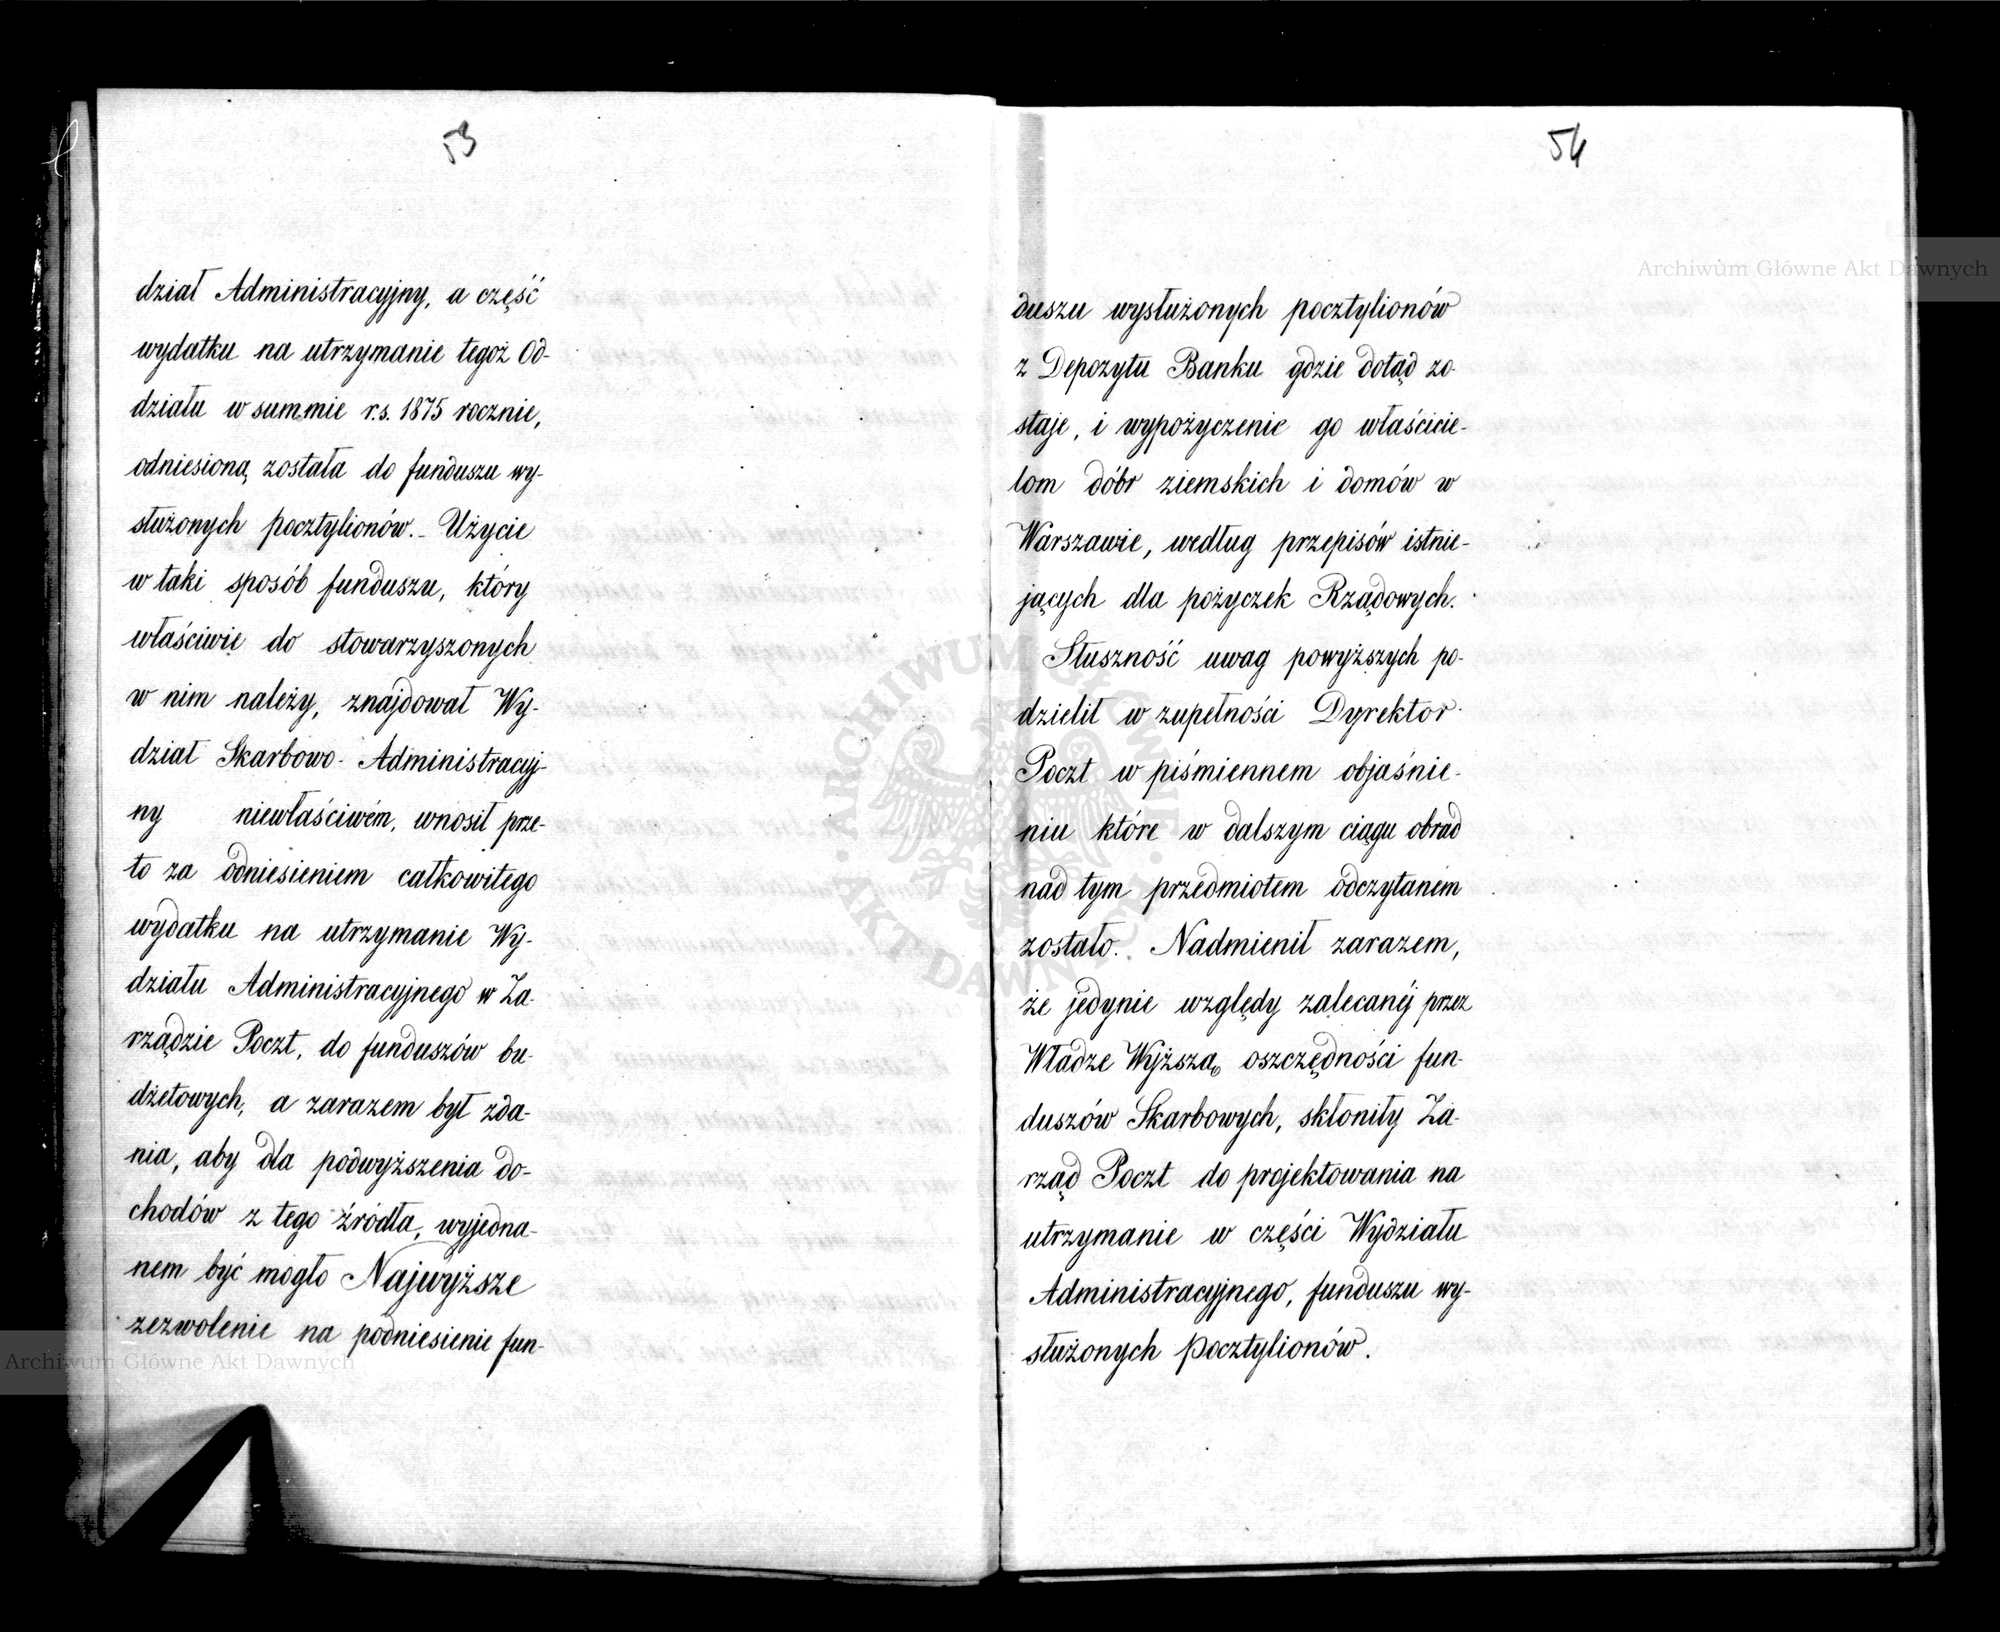 53
dział Administracyjny, a część
wydatku na utrzymanie tegoż Od-
działu w summie r.s. 1875 rocznie,
odniesioną została do funduszu wy-
służonych pocztylionów. - Użycie
w taki sposób funduszu, który
właściwie do stowarzyszonych
w nim należy, znajdował Wy-
dział Skarbowo-Administracyj-
ny niewłaściwém, wnosił prze-
to za odniesieniem całkowitego
wydatku na utrzymanie Wy-
działu Administracyjnego w Za-
rządzie Poczt, do funduszów bu-
dżetowych, a zarazem był zda-
nia, aby dla podwyższenia do-
chodów z tego źródła, wyjedna-
nem być mogło Najwyższe
zezwolenie na podniesienie fun-
54
duszu wysłużonych pocztylionów
z Depozytu Banku gdzie dotąd zo-
staje, i wypożyczenie go właścicie-
lom dóbr ziemskich i domów w
Warszawie, według przepisów istnie-
jących dla pożyczek Rządowych.
Słuszność uwag powyższych po-
dzielił w zupełności Dyrektor
Poczt w piśmiennem objaśnie-
niu które w dalszym ciągu obrad
nad tym przedmiotem odczytanem
zostało. Nadmienił zarazem,
że jedynie względy zalecanéj przez
Władze Wyższą oszczędności fun-
duszów Skarbowych, skłoniły Za-
rząd Poczt do projektowania na
utrzymanie w części Wydziału
Administracyjnego, funduszu wy-
służonych pocztylionów.
Archiwum Główne Akt Dawnych
Archiwum Główne Akt Dawnych